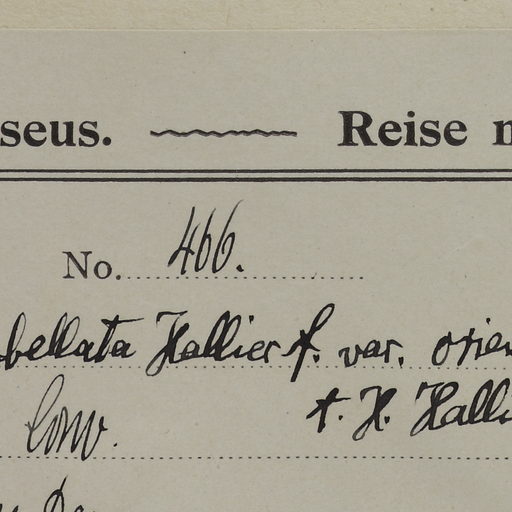 seus. Reise
No. 466.
bellata Hallier f. var. orien
Conv. t. H. Halli